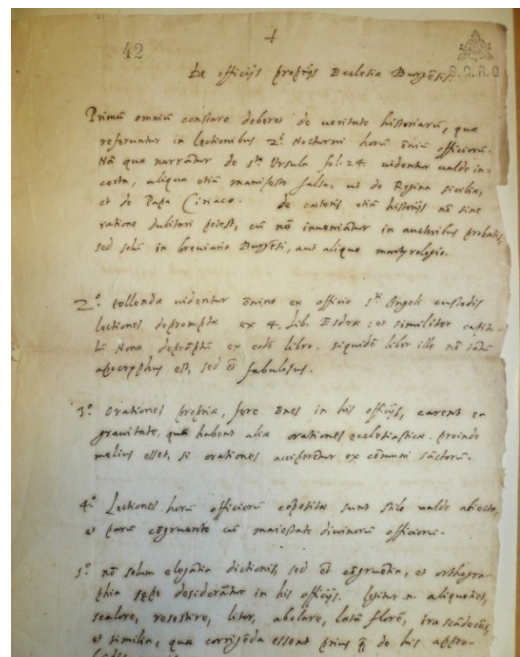 42
+
B. O. R. O.
De officijs proprijs Ecclesiæ Burgẽsis.
Primũ omniũ constare deberet de veritate historiarũ, quæ
referuntur in lectionibus 2.i Nocturni horũ õniũ officiorũ.
Nã quæ narrãtur de s.ta Ursula fol. 24. videntur valde in=
certa, aliqua etiã manifesto falsa, ut de Regina siciliæ,
et de Papa Ciriaco. de cæteris etiã historijs nõ sine
ratione dubitari potest, cũ nõ inveniãtur in auctoribus probatis,
sed solũ in breviario Burgẽsi, aut aliquo martyrologio.
2.º tollendæ videntur õnino ex officio s.ti Angeli custodis
lectiones depromptæ ex 4. lib. Esdræ: et similiter capit=
lũ Nonæ deprõptũ ex eodẽ libro. siquidẽ liber ille nõ solũ
apocryphus est, sed et fabulosus.
3.º Orationes propriæ, fere õnes in his officijs, carent ea
gravitate, quã habent aliæ orationes ecclesiasticæ. proinde
melius esset, si orationes acciperẽtur ex cõmuni sãctorũ.
4.º Lectiones horũ officiorũ cõpositæ sunt stilo valde abiecto,
et parũ cõgruente cũ maiestate divinorũ officiorũ.
5.º nõ solum elegãtia dictionis, sed et cõgruẽtia, et orthogra=
phia sępe desiderãtur in his officijs. n. aliquoties,
et similia, quæ corrigẽda essent prius q̃ de his appro=